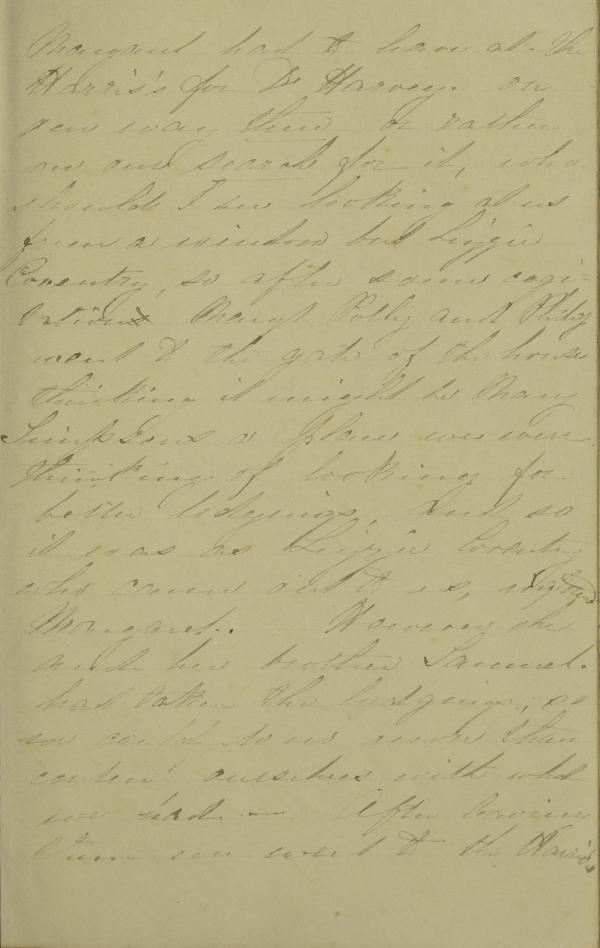 Margaret had to leave at the
Harris's for Dr Harvey. on
our way there or rather
on our search for it, who
should I see looking at us
from a window but Lizzie
Coventry, so after some cogi-
tations Margt Polly and Philip
went to the gate of the house
thinking it might be Mary
Simpsons a place we were
thinking of looking for
better lodgings, and so
it was as Lizzie Coventry
who came out to us, told
Margaret. However she
and her brother Samuel
had taken the lodgings, so
we could do no more than
content ourselves with what
we had. — After leaving
them we went to the Harris